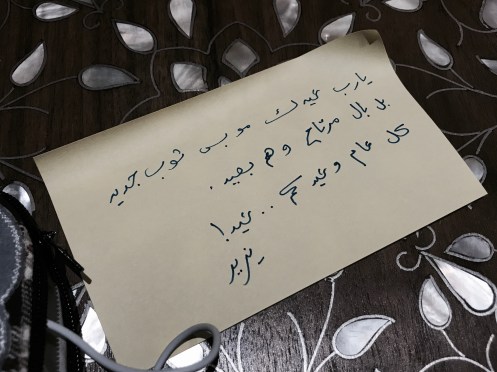 يارب عيدك مو بس ثوب جديد
بل بال مرتاح وهم بعيد.
كل عام وعيدكم.. عيد!
يزيد